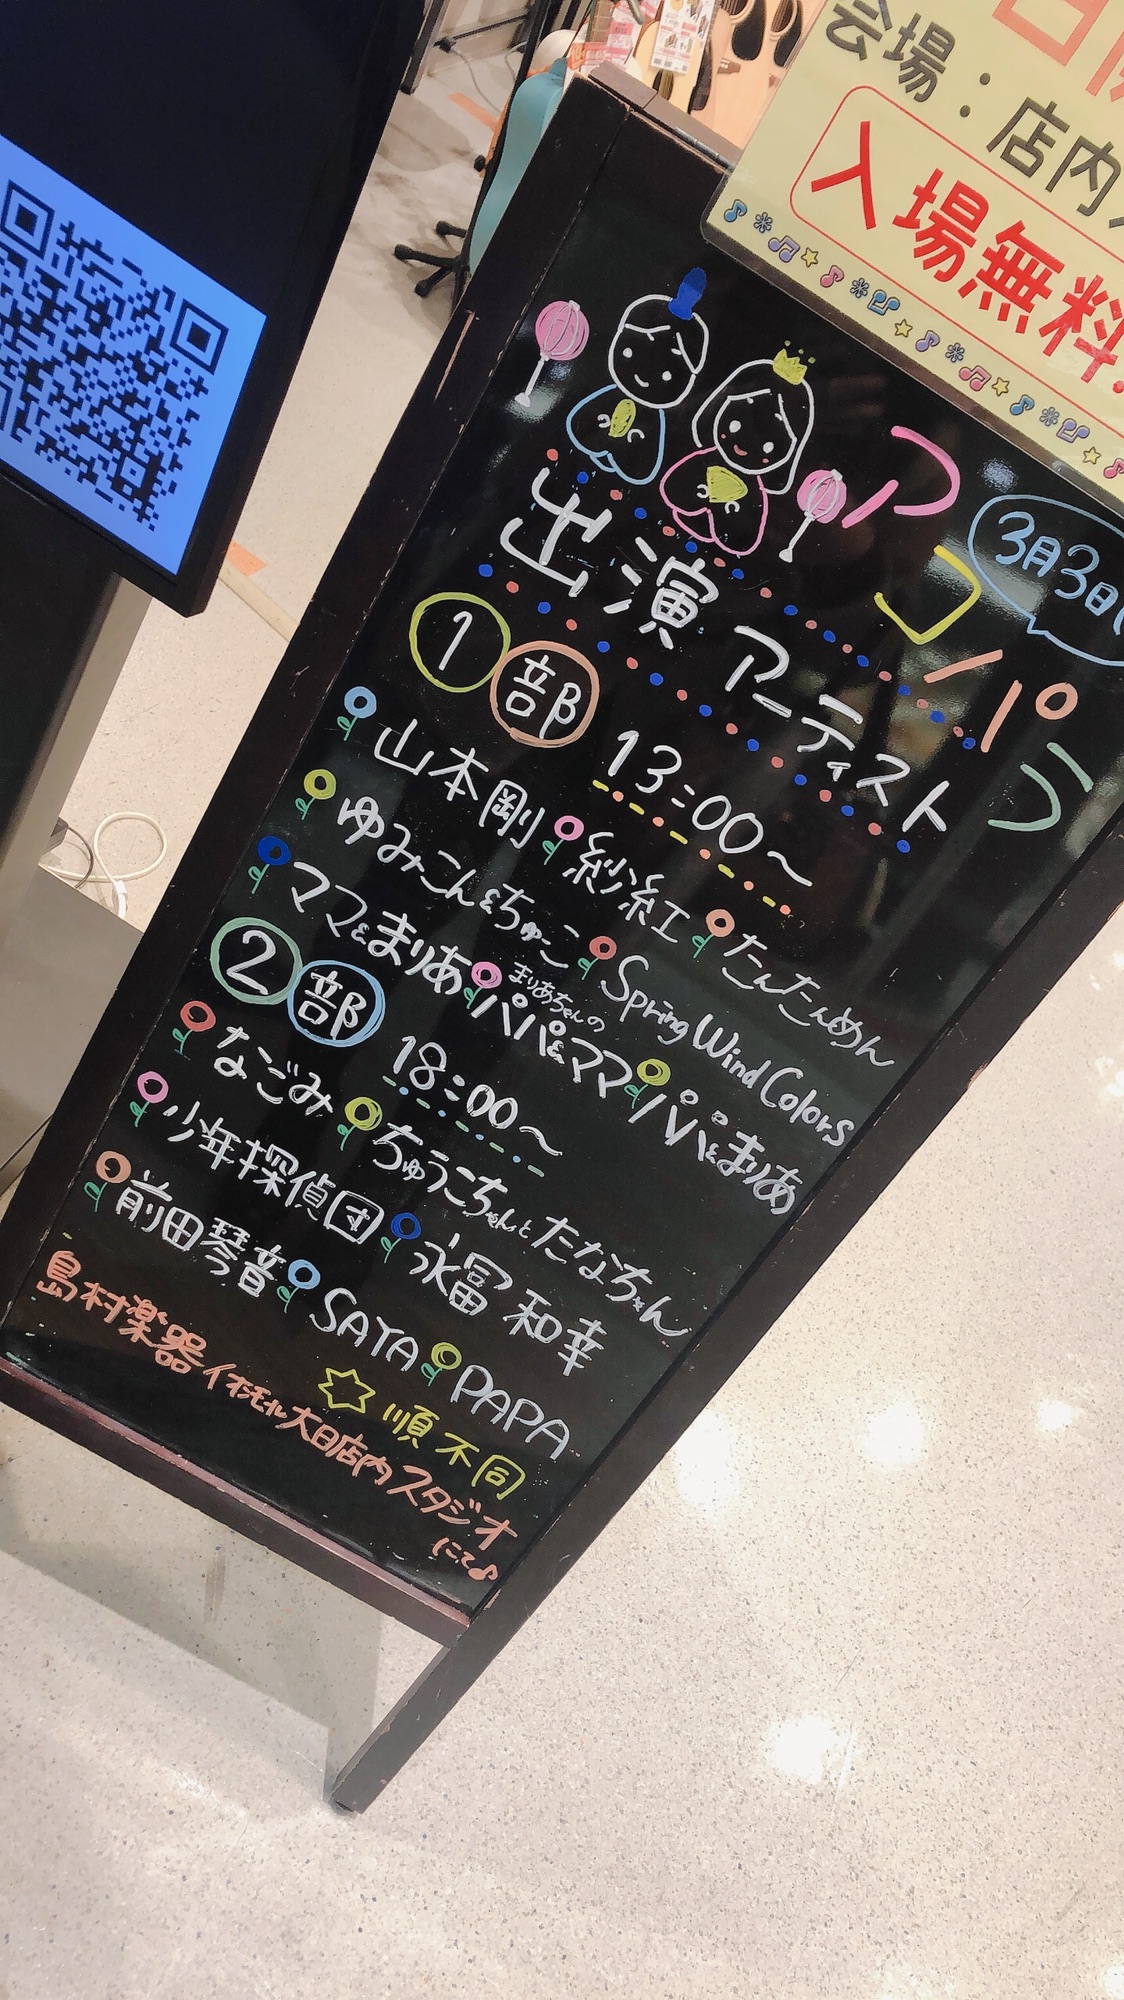 会場：店内
入場無料
アコパラ
3月3日
出演アーティスト
1部 13:00～
山本剛 紗紅 たんたんめん
ゆみこん&ちゅこ Spring Wind Colors
ママ&まりあ まりあちゃんのパパ&ママ パパ&まりあ
2部 18:00～
なごみ ちゅうこちゃんとたなちゃん
少年探偵団 永冨 和幸
前田琴音 SAYA PAPA
順不同
島村楽器イオンモール大日店内スタジオ
にて♪